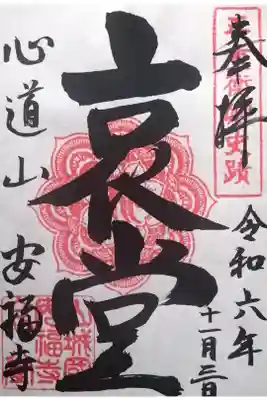 奉拝
令和六年
十一月三日
哀堂
心道山
安福寺